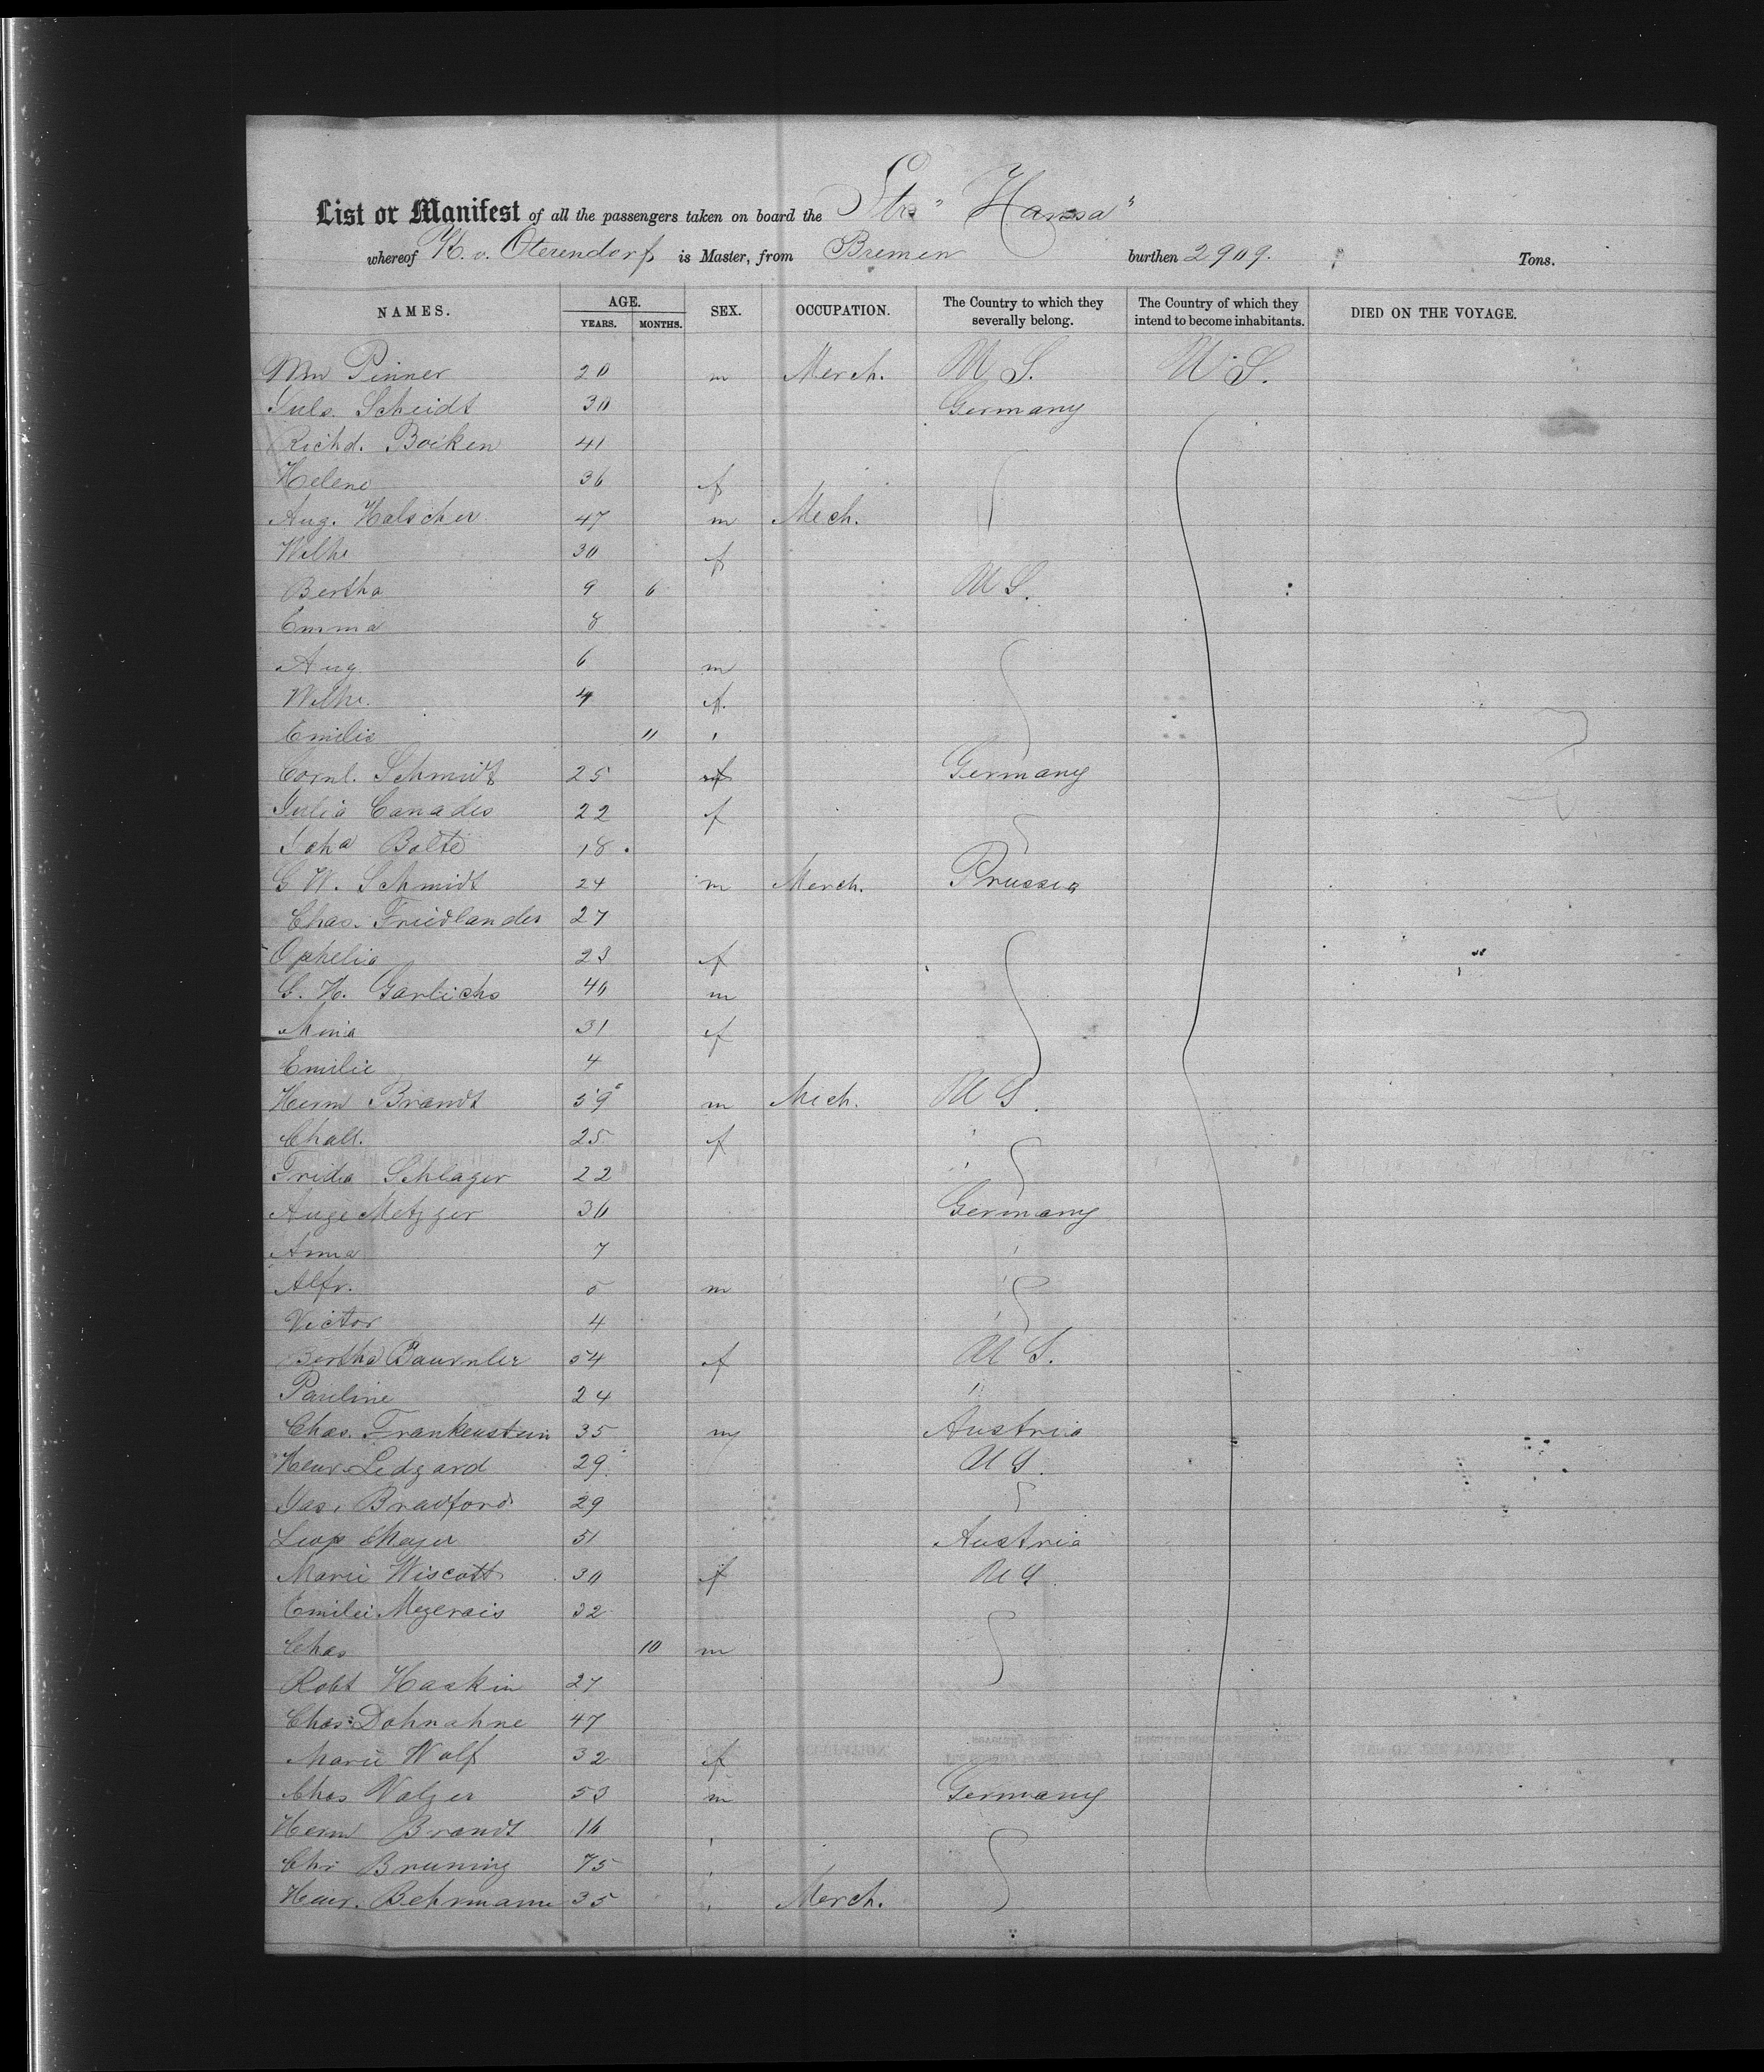 List or Manifest of all the passengers taken on board the Str "Hansa"
whereof K. v. Oterendorp is Master, from Bremen burthen 2909. Tons.
NAMES. AGE. YEARS. MONTHS. SEX. OCCUPATION. The Country to which they severally belong. The Country of which they intend to become inhabitants. DIED ON THE VOYAGE.
Wm Pinner 20 m Merch. U S. U. S.
Juls. Scheidt 30 Germany
Richd. Boiken 41
Helene 36 f
Aug. Holscher 47 m Mech.
Wilhe 30 f
Bertha 9 6 U S.
Emma 8
Aug. 6 m
Wilhe. 4 f.
Emilie 11 "
Cornl. Schmidt 25 f Germany
Julia Canades 22 f
Joha Bolte 18.
G. W. Schmidt 24 m Merch. Prussia
Chas. Friedlander 27
Ophelia 23 f
G. H. Garlichs 40 m
Mina 31 f
Emilie 4
Herm Brandt 59 m Mech. U S.
Chall. 25 f
Frida Schlager 22
Auge Metzger 30 Germany
Anna 7 "
Alfr. 5 m "
Victor 4 "
Bertha 54 f U S.
Pauline 24 "
Chas. Frankenstein 35 m Austria
Henr. Ledgard 29 U S.
Jas. Bradford 29
Leop Meyer 51 Austria
Marie Wiscott 30 f U S
Emilie Mezerais 32
Chas 10 m
Robt Haskin 27
Chas: Dohnahne 47
Marie Wolf 32 f
Chas Valzer 53 m Germany
Herm Brandt 16 "
Chr Bruning 75 "
Henr. Behrmann 35 " Merch.